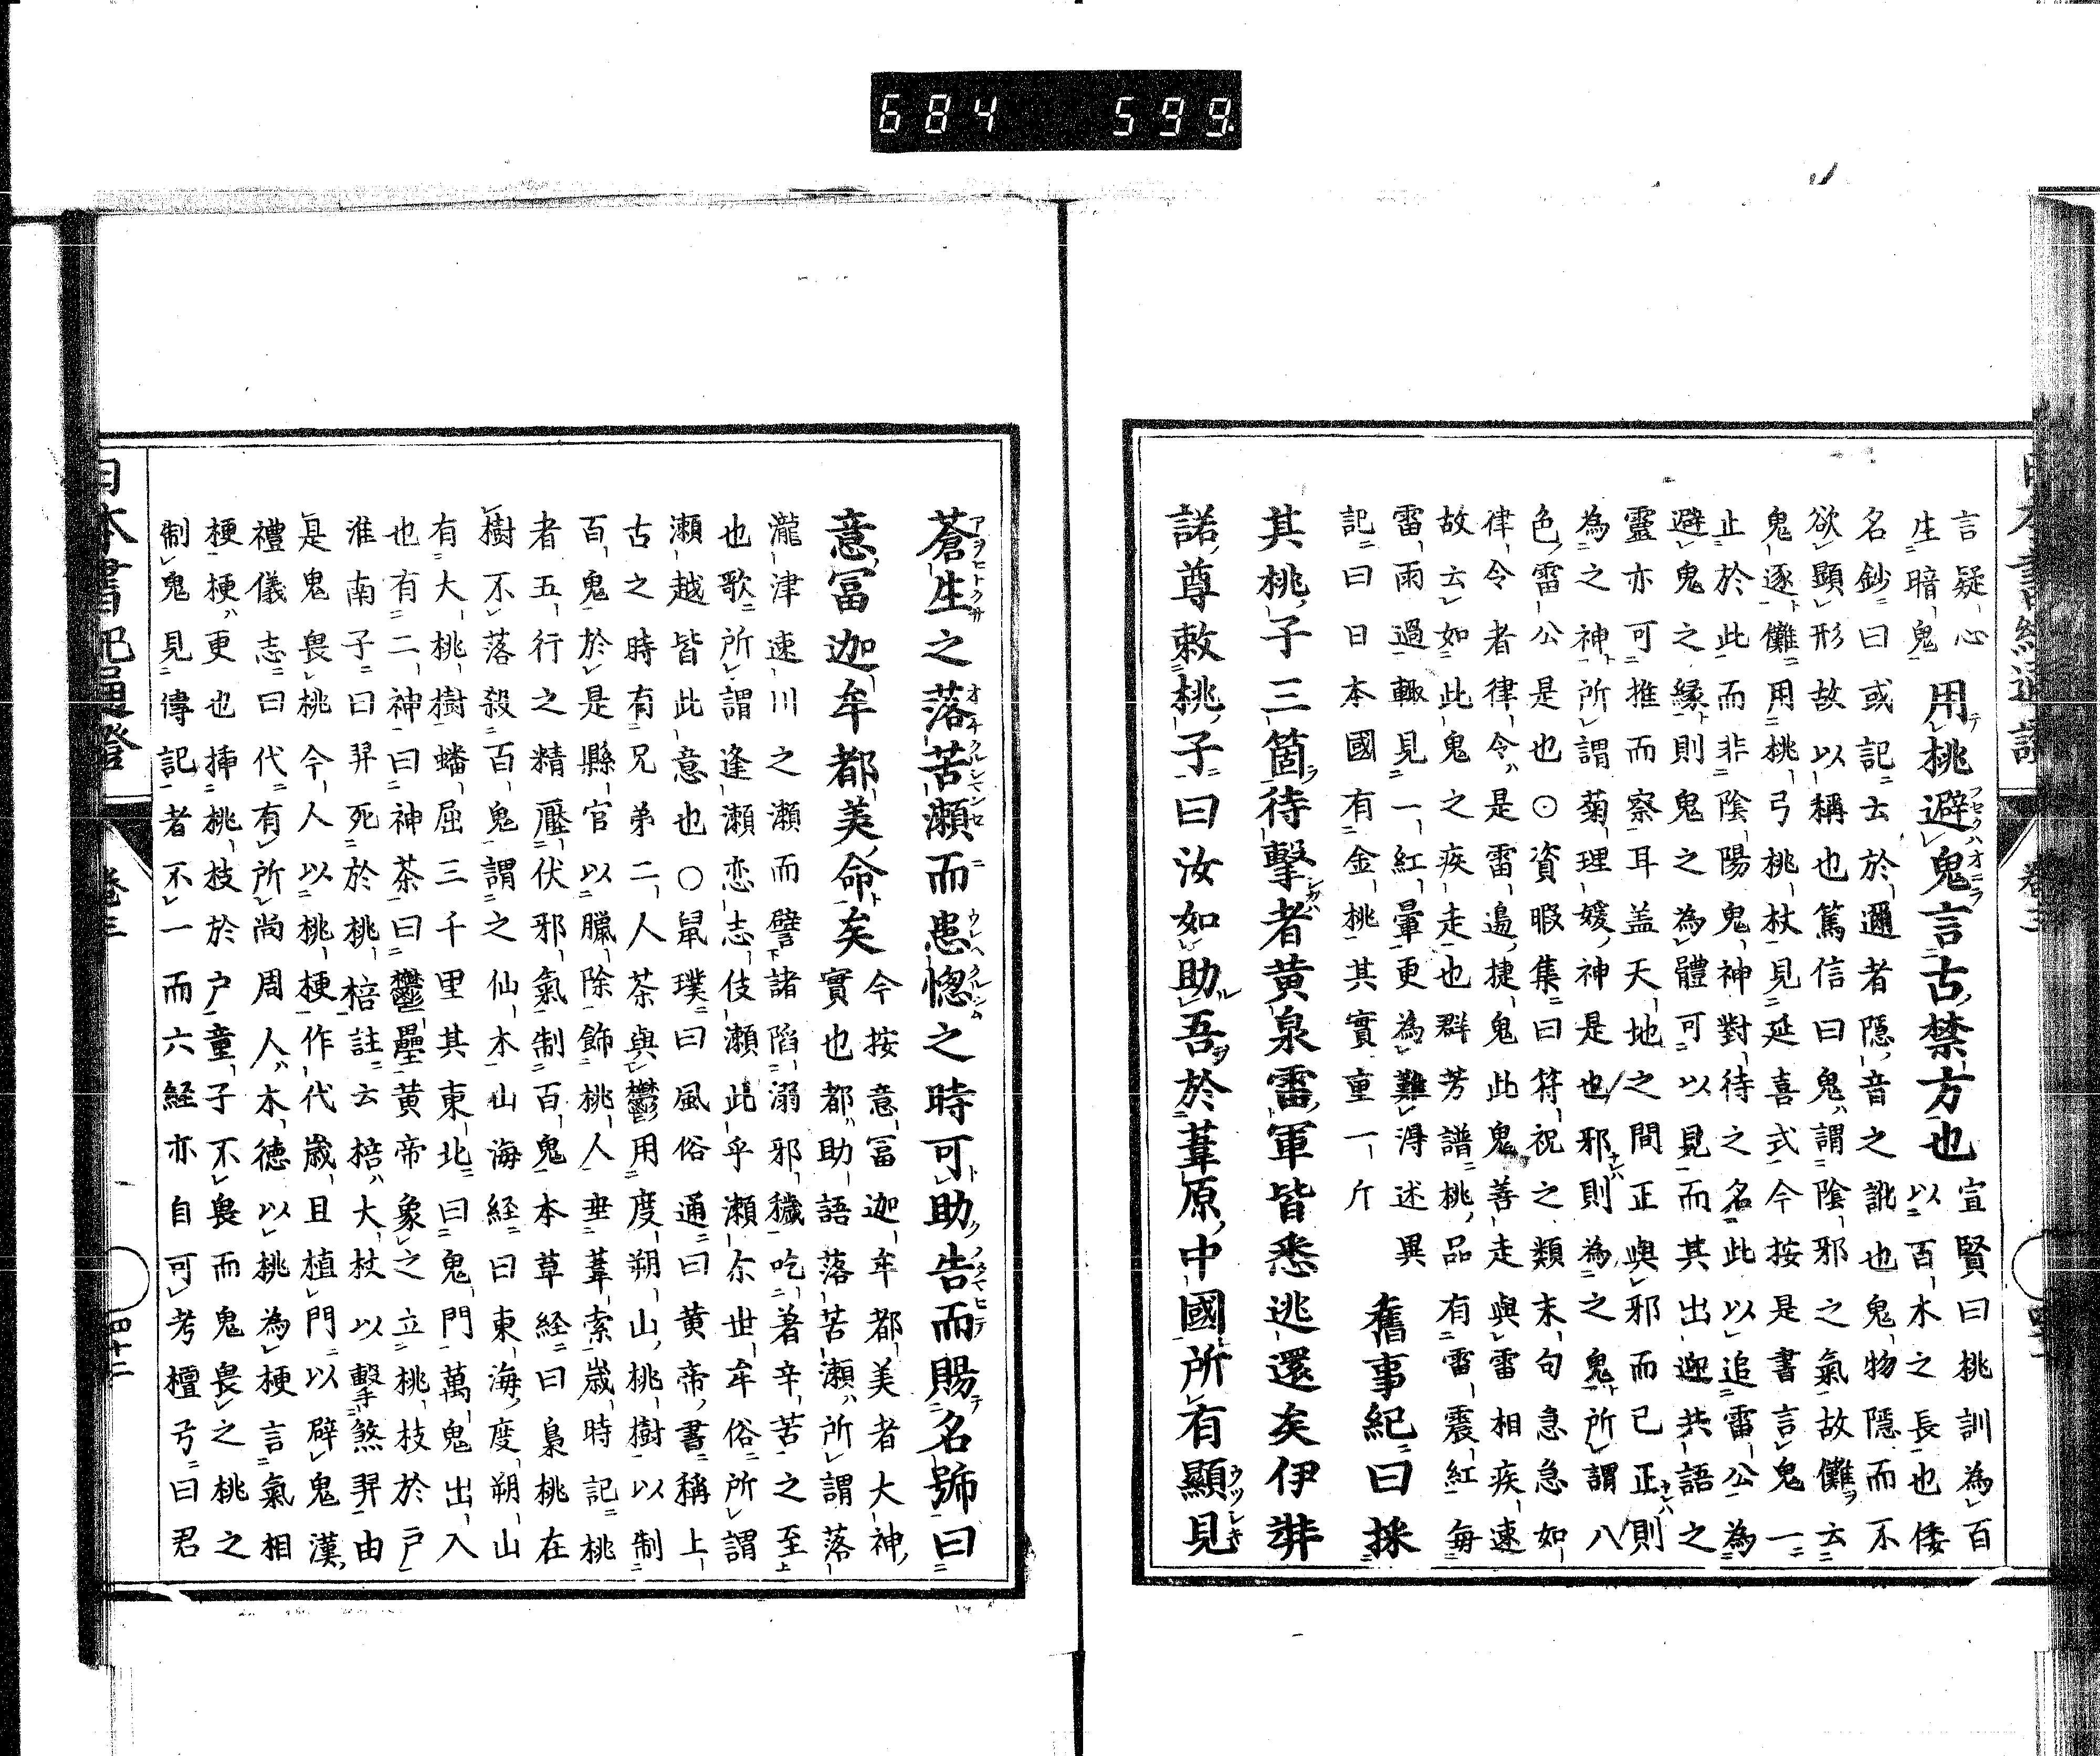 684 599.
言疑心
生暗鬼
用桃避鬼言古禁方也
宣賢曰桃訓為百
以百木之長也倭
名鈔曰或記云於邇者隠音之訛也鬼物隠而不
欲顕形故以稱也篤信曰鬼謂陰邪之氣故儺云
鬼逐儺用桃弓桃杖見延喜式今按是書言鬼一
止於此而非陰陽鬼神對待之名此以追雷公為
避鬼之縁則鬼之為體可以見而其出迎共語之
靈亦可推而察耳盖天地之間正與邪而已正則
為之神所謂菊理媛神是也邪則為之鬼所謂八
色雷公是也○資暇集曰符祝之類末句急急如
律令者律令是雷邉捷鬼此鬼善走與雷相疾速
故云如此鬼之疾走也群芳譜桃品有雷震紅毎
雷雨過輙見一紅暈更為難得述異
記曰日本國有金桃其實重一斤
舊事紀曰採
其桃子三箇待撃者黄泉雷軍皆悉逃還矣伊弉
諾尊敕桃子曰汝如助吾於葦原中國所有顯見
蒼生之落苦瀬而患惚之時可助告而賜名號曰
意冨迦牟都美命矣
今按意冨迦牟都美者大神
實也都助語落苦瀬所謂落
瀧津速川之瀬而譬諸陷溺邪穢吃著辛苦之至
也歌所謂逢瀬恋志伎瀬此乎瀬尓世牟俗所謂
瀬越皆此意也○鼠璞曰風俗通曰黄帝書稱上
古之時有兄弟二人荼與鬱用度朔山桃樹以制
百鬼於是縣官以臘除飾桃人垂葦索歳時記桃
者五行之精壓伏邪氣制百鬼本草経曰梟桃在
樹不落殺百鬼謂之仙木山海経曰東海度朔山
有大桃樹蟠屈三千里其東北曰鬼門萬鬼出入
也有二神曰神荼曰鬱壘黄帝象之立桃枝於戸
淮南子曰羿死於桃棓註云棓大杖以撃煞羿由
是鬼畏桃今人以桃梗作代歳且植門以辟鬼漢
禮儀志曰代有所尚周人木徳以桃為梗言氣相
梗梗更也挿桃枝於戸童子不畏而鬼畏之桃之
制鬼見傳記者不一而六経亦自可考檀弓曰君
日本書紀通證
卷三
四十二